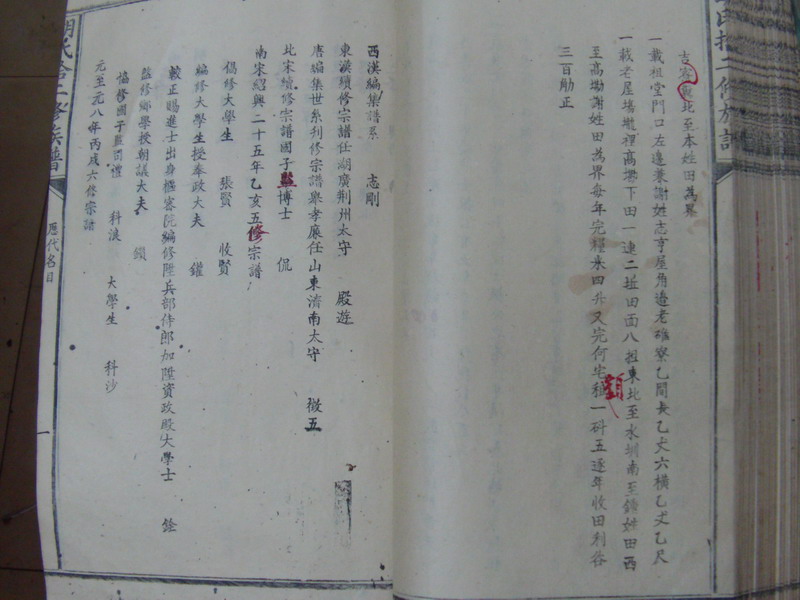 吉 窩 北至本姓田為界
一載祖堂門口左邊養謝姓志亨屋角邊老碓寮乙間長乙丈六橫乙丈乙尺
一載老屋場壠裡高墈下田一連二坵田面八担東北至水圳南至鍾姓田西
至高墈謝姓田為界每年完糧米四升又完何宅租額一碩五逐年收田利谷
三百觔正
西漢編集譜系 志剛
東漢續修宗譜任湖廣荊州太守 殿遊
唐編集世系列修宗譜舉孝廉任山東濟南太守 徵五
北宋續修宗譜國子監博士 侃
南宋紹興二十五年乙亥五修宗譜
倡修大學生 張賢 收賢
編修大學生授奉政大夫 鑵
較正賜進士出身樞密院編修陞兵部侍郎加陞資政殿大學士 銓
監修鄉學授朝議大夫 鎖
協修國子監司禮 科浪 大學生 科沙
元至元八年丙戌六修宗譜
氏拾二修族譜
歷代名目
一